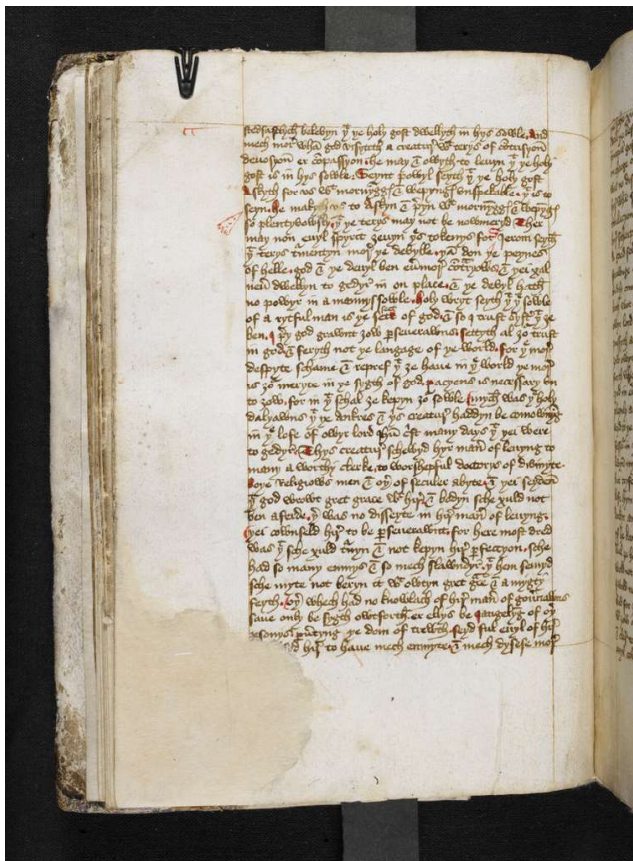 stedfastlych belevyn þt þe holy gost dwellyth in hys sowle. And
mech mor whan god visyteth a creatur wt terys of contrisyon
devosyon er compassyon he may & owyth to levyn þt þe holy
gost is in hys sowle. Seynt powyl seyth þt þe holy gost
Askyth for vs wt mornynggys & wepyngys vnspekable. þt is to
seyn. he makyth vs to Askyn & preyn wt mornynggys & wepyngys
so plentyvowsly þt þe terys may not be nowmeryd Ther
may non euyl spiryt ȝeuyn þes tokenys for Jerom seyth
þt terys turmentyn mor þe devylle. þan don þe peynes
of helle. god & þe devyl ben euermor contraryows & þei xal
neuer dwellyn to gedyr in on place. & þe devyl hath
no powyr in a mannys sowle. Holy wryt seyth þt þe sowle
of a rytful man is þe sete of god. & so I trust syster þt ȝe
ben. I prey god grawnt ȝow perseuerawns. settyth al ȝowr trust
in god. & feryth not þe langage of þe world. for þe mor
despyte schame & repref þt ȝe haue in þe world þe mor
is ȝowr meryte in þe sygth of god. pacyens is necessary vn
to ȝow. for in þt schal ȝe kepyn ȝowr sowle. Mych was þe holy
dalyawns þt þe ankres & þis creatur haddyn be comownyng
in þe lofe of owyr lord Jhesu crist many days þt þei were
to gedyr. Thys creatur schewyd hyr maner of leuyng to
many a worthy clerke. to worshepful doctorys of divinyte.
boþe religiows men & oþer of seculer abyte. & þei seyden
þt god wrowt gret grace wt hir & bodyn sche xuld not
ben aferde. þer was no disseyte in hir maner of leuyng.
þei cownseld hir to be perseuerawnt. for here most dred
was þt sche xuld turnyn & not kepyn hir perfeccyon. sche
had so many enmys & so mech slawndyr. þt hem semyd
sche myte not beryn it wt owtyn gret grace & a mygty
feyth. Oþer whech had no knowlach of hir maner of gouernawns
saue only be sygth owtforth. er ellys be jangelyng of oþer
personys pervertyng þe dom of trewth. seyd ful euyl of hir
hir to haue mech enmyte. & mech dysese mor